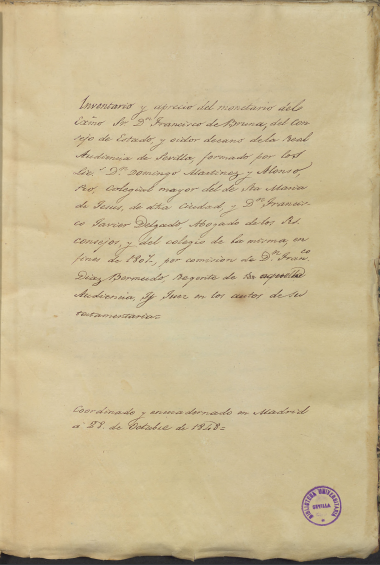 Inventario y aprecio del monetario del
Exmo Sr. Dn. Francisco de Bruna, del Con
sejo de Estado, y oidor decano de la Real
Audiencia de Sevilla, formado por los
Lic.s Dn. Domingo Martinez y Alonso,
Pro, Colegial mayor del de Sta Maria
de Jesus, de dha Ciudad, y Dn. Francis
co Javier Delgado Abogado de los Rs.
consejos, y del colegio de la misma, en
fines de 1807, por comision de Dn. Franco
Diaz Bermudo, Regente de la
Audiencia, y Juez en los autos de su
testamentaria=
Coordinado y encuadernado en Madrid
a 28. de Octubre de 1848=
BIBLIOTECA UNIVERSITARIA
SEVILLA